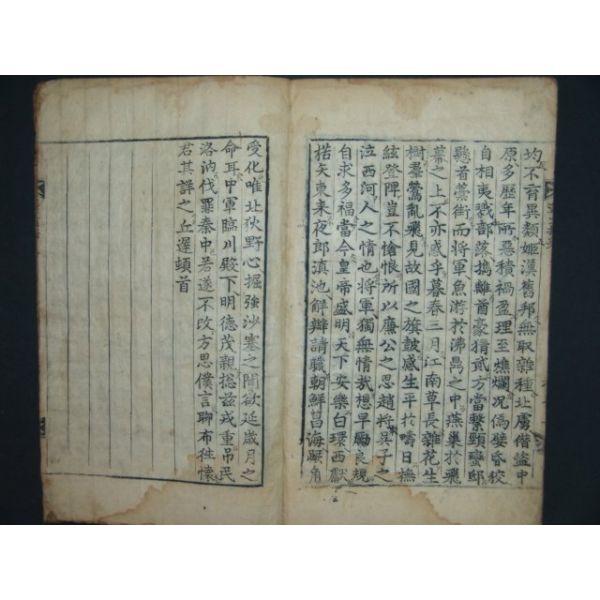 均不育異類姬漢舊邦無取雜種北虜僭盜中
原多歷年所惡積禍盈理至燋爛况偽孽昏狡
自相夷戮部落攜離酋豪猜貳方當繫頸蠻邸
懸首藁街而將軍魚游於沸鼎之中燕巢於飛
幕之上不亦惑乎暮春三月江南草長雜花生
樹羣鶯亂飛見故國之旗鼓感生平於疇日撫
絃登陴豈不愴悢所以廉公之思趙將吳子之
泣西河人之情也將軍獨無情哉想早勵良規
自求多福當今皇帝盛明天下安樂白環西獻
楛矢東来夜郎滇池解辮請職朝鮮昌海蹶角
受化唯北狄野心掘強沙塞之間欲延歲月之
命耳中軍臨川殿下明德茂親揔茲戎重吊民
洛汭伐罪秦中若遂不改方思僕言聊布徃懷
君其詳之丘遲頓首